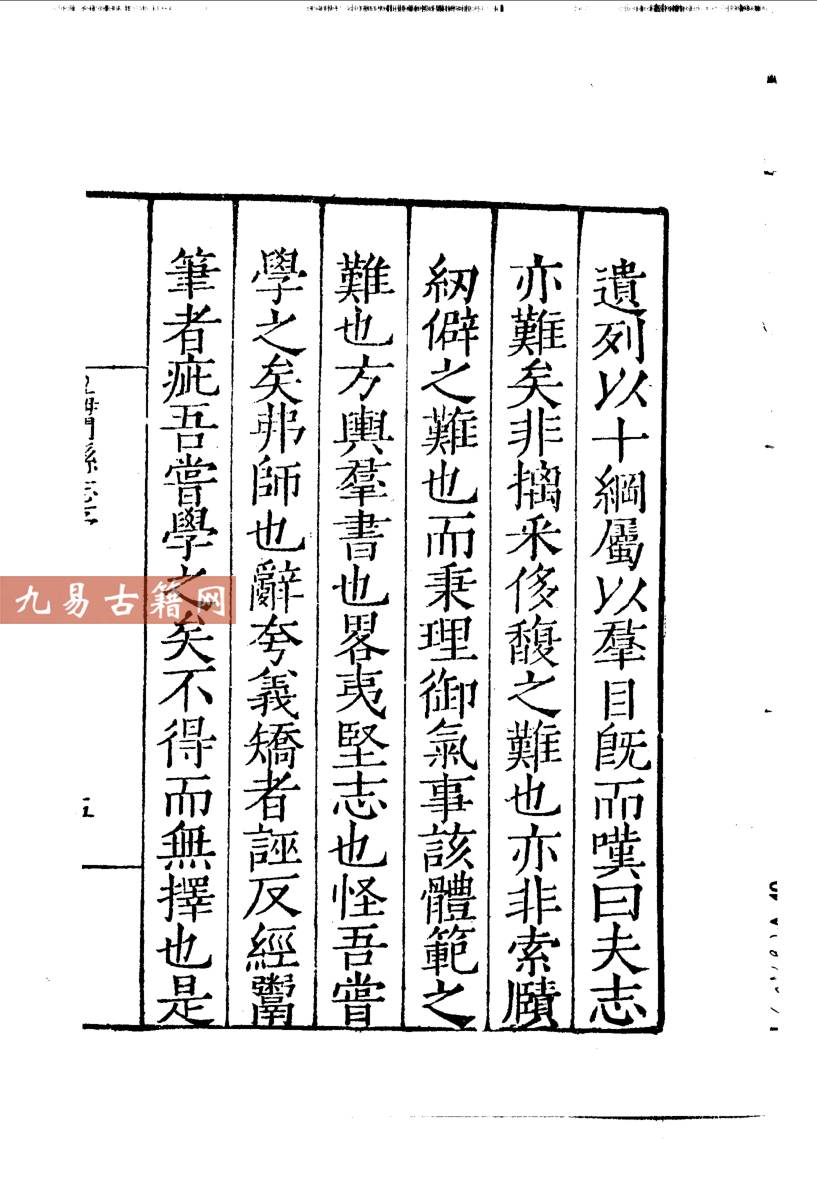 遺列以十綱屬以羣目既而嘆曰夫志
亦難矣非摛采侈馥之難也亦非索賾
紉僻之難也而秉理御氣事該體範之
難也方輿羣書也畧夷堅志也怪吾嘗
學之矣弗師也辭夸義矯者誣反經鬻
筆者疵吾嘗學之矣不得而無擇也是
門縣志
五
九易古籍网